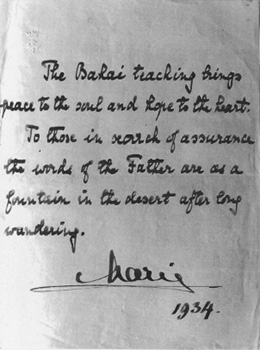 The Bahai teaching brings
peace to the soul and hope to the heart.
To those in search of assurance
the words of the Father are as a
fountain in the desert after long
wandering.
Marie
1934.